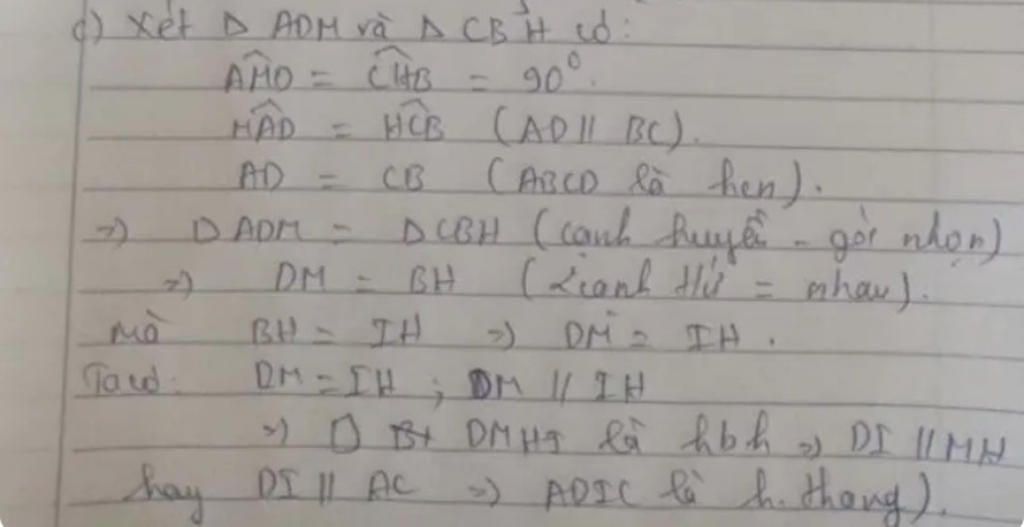 c) Xét Δ ADM và Δ CBH có:
AMD = CHB = 90°.
MAD = HCB (AD // BC).
AD = CB (ABCD là hcn).
=> Δ ADM = Δ CBH (cạnh huyền - góc nhọn)
=> DM = BH (2 cạnh t/ứ = nhau).
Mà BH = IH => DM = IH.
Ta có: DM = IH ; DM // IH
=> □ DMHI là hbh => DI // MH
hay DI // AC => ADIC là h. thang).